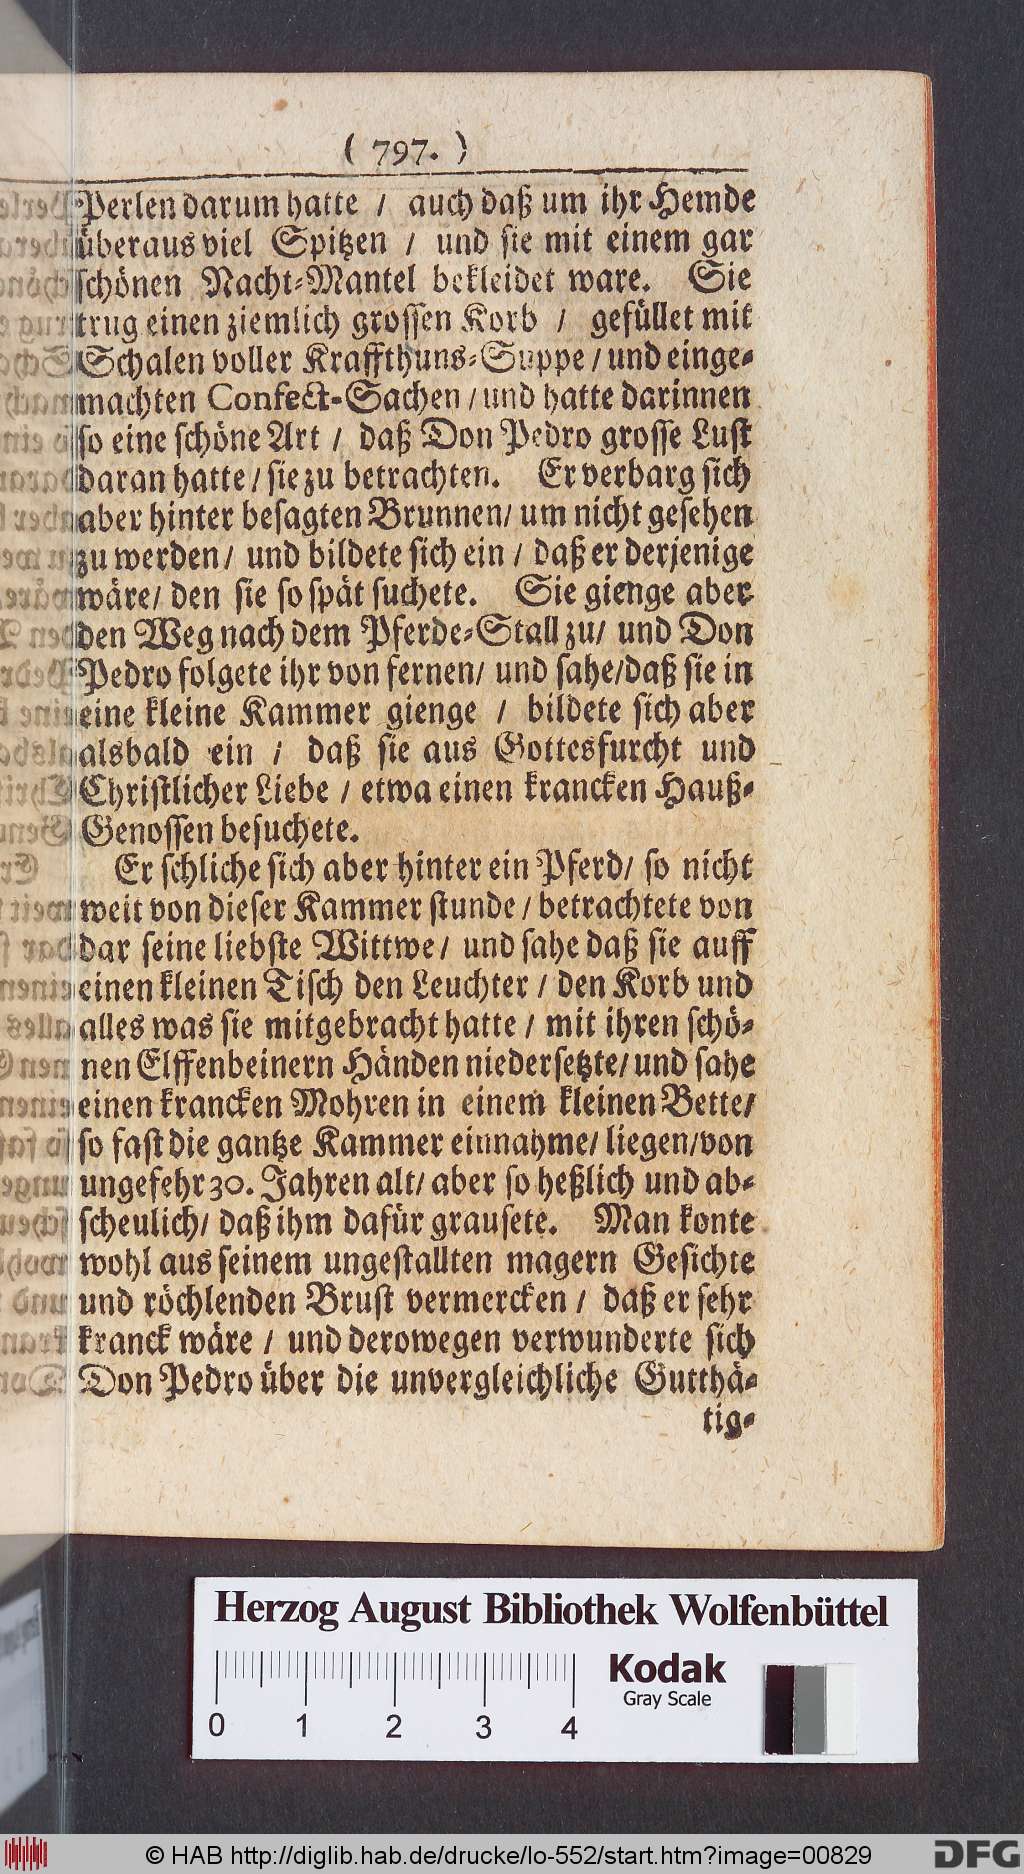 ( 797. )
Perlen darum hatte / auch daß um ihr Hemde
überaus viel Spitzen / und sie mit einem gar
schönen Nacht-Mantel bekleidet ware. Sie
trug einen ziemlich grossen Korb / gefüllet mit
Schalen voller Kraffthuns-Suppe / und einge-
machten Confect-Sachen / und hatte darinnen
so eine schöne Art / daß Don Pedro grosse Lust
daran hatte / sie zu betrachten. Er verbarg sich
aber hinter besagten Brunnen / um nicht gesehen
zu werden / und bildete sich ein / daß er derjenige
wäre / den sie so spät suchete. Sie gienge aber
den Weg nach dem Pferde-Stall zu / und Don
Pedro folgete ihr von fernen / und sahe / daß sie in
eine kleine Kammer gienge / bildete sich aber
alsbald ein / daß sie aus Gottesfurcht und
Christlicher Liebe / etwa einen krancken Hauß-
Genossen besuchete.
Er schliche sich aber hinter ein Pferd / so nicht
weit von dieser Kammer stunde / betrachtete von
dar seine liebste Wittwe / und sahe daß sie auff
einen kleinen Tisch den Leuchter / den Korb und
alles was sie mitgebracht hatte / mit ihren schö-
nen Elffenbeinern Händen niedersetzte / und sahe
einen krancken Mohren in einem kleinen Bette /
so fast die gantze Kammer einnahme / liegen / von
ungefehr 30. Jahren alt / aber so heßlich und ab-
scheulich / daß ihm dafür grausete. Man konte
wohl aus seinem ungestallten magern Gesichte
und röchlenden Brust vermercken / daß er sehr
kranck wäre / und derowegen verwunderte sich
Don Pedro über die unvergleichliche Gutthä-
tig-
Herzog August Bibliothek Wolfenbüttel
Kodak
Gray Scale
0 1 2 3 4
© HAB http://diglib.hab.de/drucke/lo-552/start.htm?image=00829
DFG